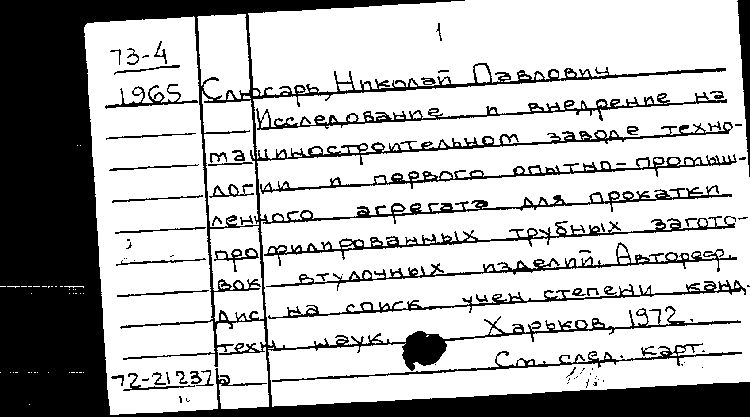 1
73-4
1965 Слюсарь, Николай Павлович
Исследование и внедрение на
машиностроительном заводе техно-
логии и первого опытно-промыш-
ленного агрегата для прокатки
профилированных трубных загото-
вок втулочных изделий. Автореф.
дис. на соиск. учен. степени канд.
техн. наук. Харьков, 1972.
См. след. карт.
72-21237а